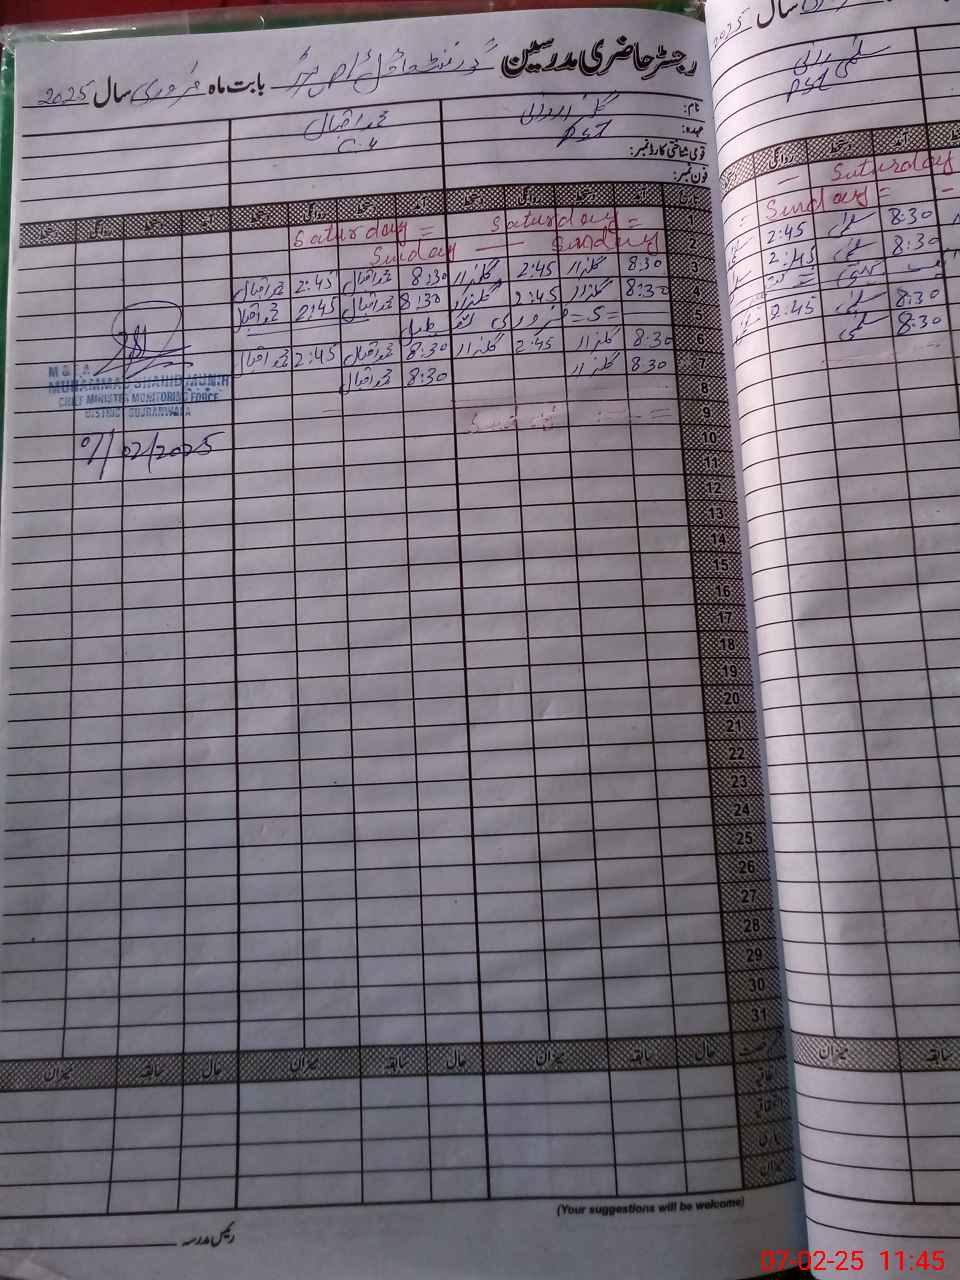 رجسٹر حاضری مدرسین
بابت ماہ فروری سال 2025
نام:
محمد اقبال
عہدہ: PST
C.4
قومی شناختی کارڈ نمبر:
فون نمبر:
تاریخ آمد دستخط روانگی دستخط آمد دستخط روانگی دستخط آمد دستخط روانگی دستخط
1 Saturday = Saturday =
2 Sunday — Sunday
3 8:30 گلزار 2:45 گلزار 8:30 محمد اقبال 2:45 محمد اقبال
4 8:30 گلزار 2:45 گلزار 8:30 محمد اقبال 2:45 محمد اقبال
5 = 5 = فروری تعطیل
6 8:30 گلزار 2:45 گلزار 8:30 محمد اقبال 2:45 محمد اقبال
7 8:30 گلزار 8:30 محمد اقبال
8
9
10
11
12
13
14
15
16
17
18
19
20
21
22
23
24
25
26
27
28
29
30
31
M & A
MUHAMMAD SHAHID
CHIEF MINISTER MONITORING FORCE
DISTRICT GUJRANWALA
07/02/2025
رخصت حال سابقہ میزان حال سابقہ میزان حال سابقہ میزان
اتفاقیہ
بیماری
میزان
(Your suggestions will be welcome)
رئیس مدرسہ
سال 2025
سلمیٰ
PST
آمد دستخط روانگی
Saturday —
Sunday =
8:30 سلمیٰ 2:45
8:30 سلمیٰ 2:45
8:30 سلمیٰ 2:45
8:30 سلمیٰ
سابقہ میزان
07-02-25 11:45